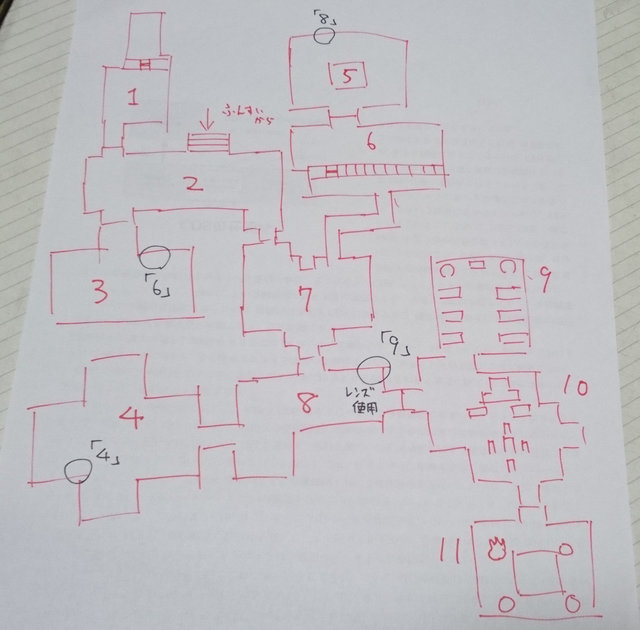 「8」
5
1
ふんすい
から
6
2
3
「6」
7
9
「9」
レンズ
使用
8
10
4
「4」
11